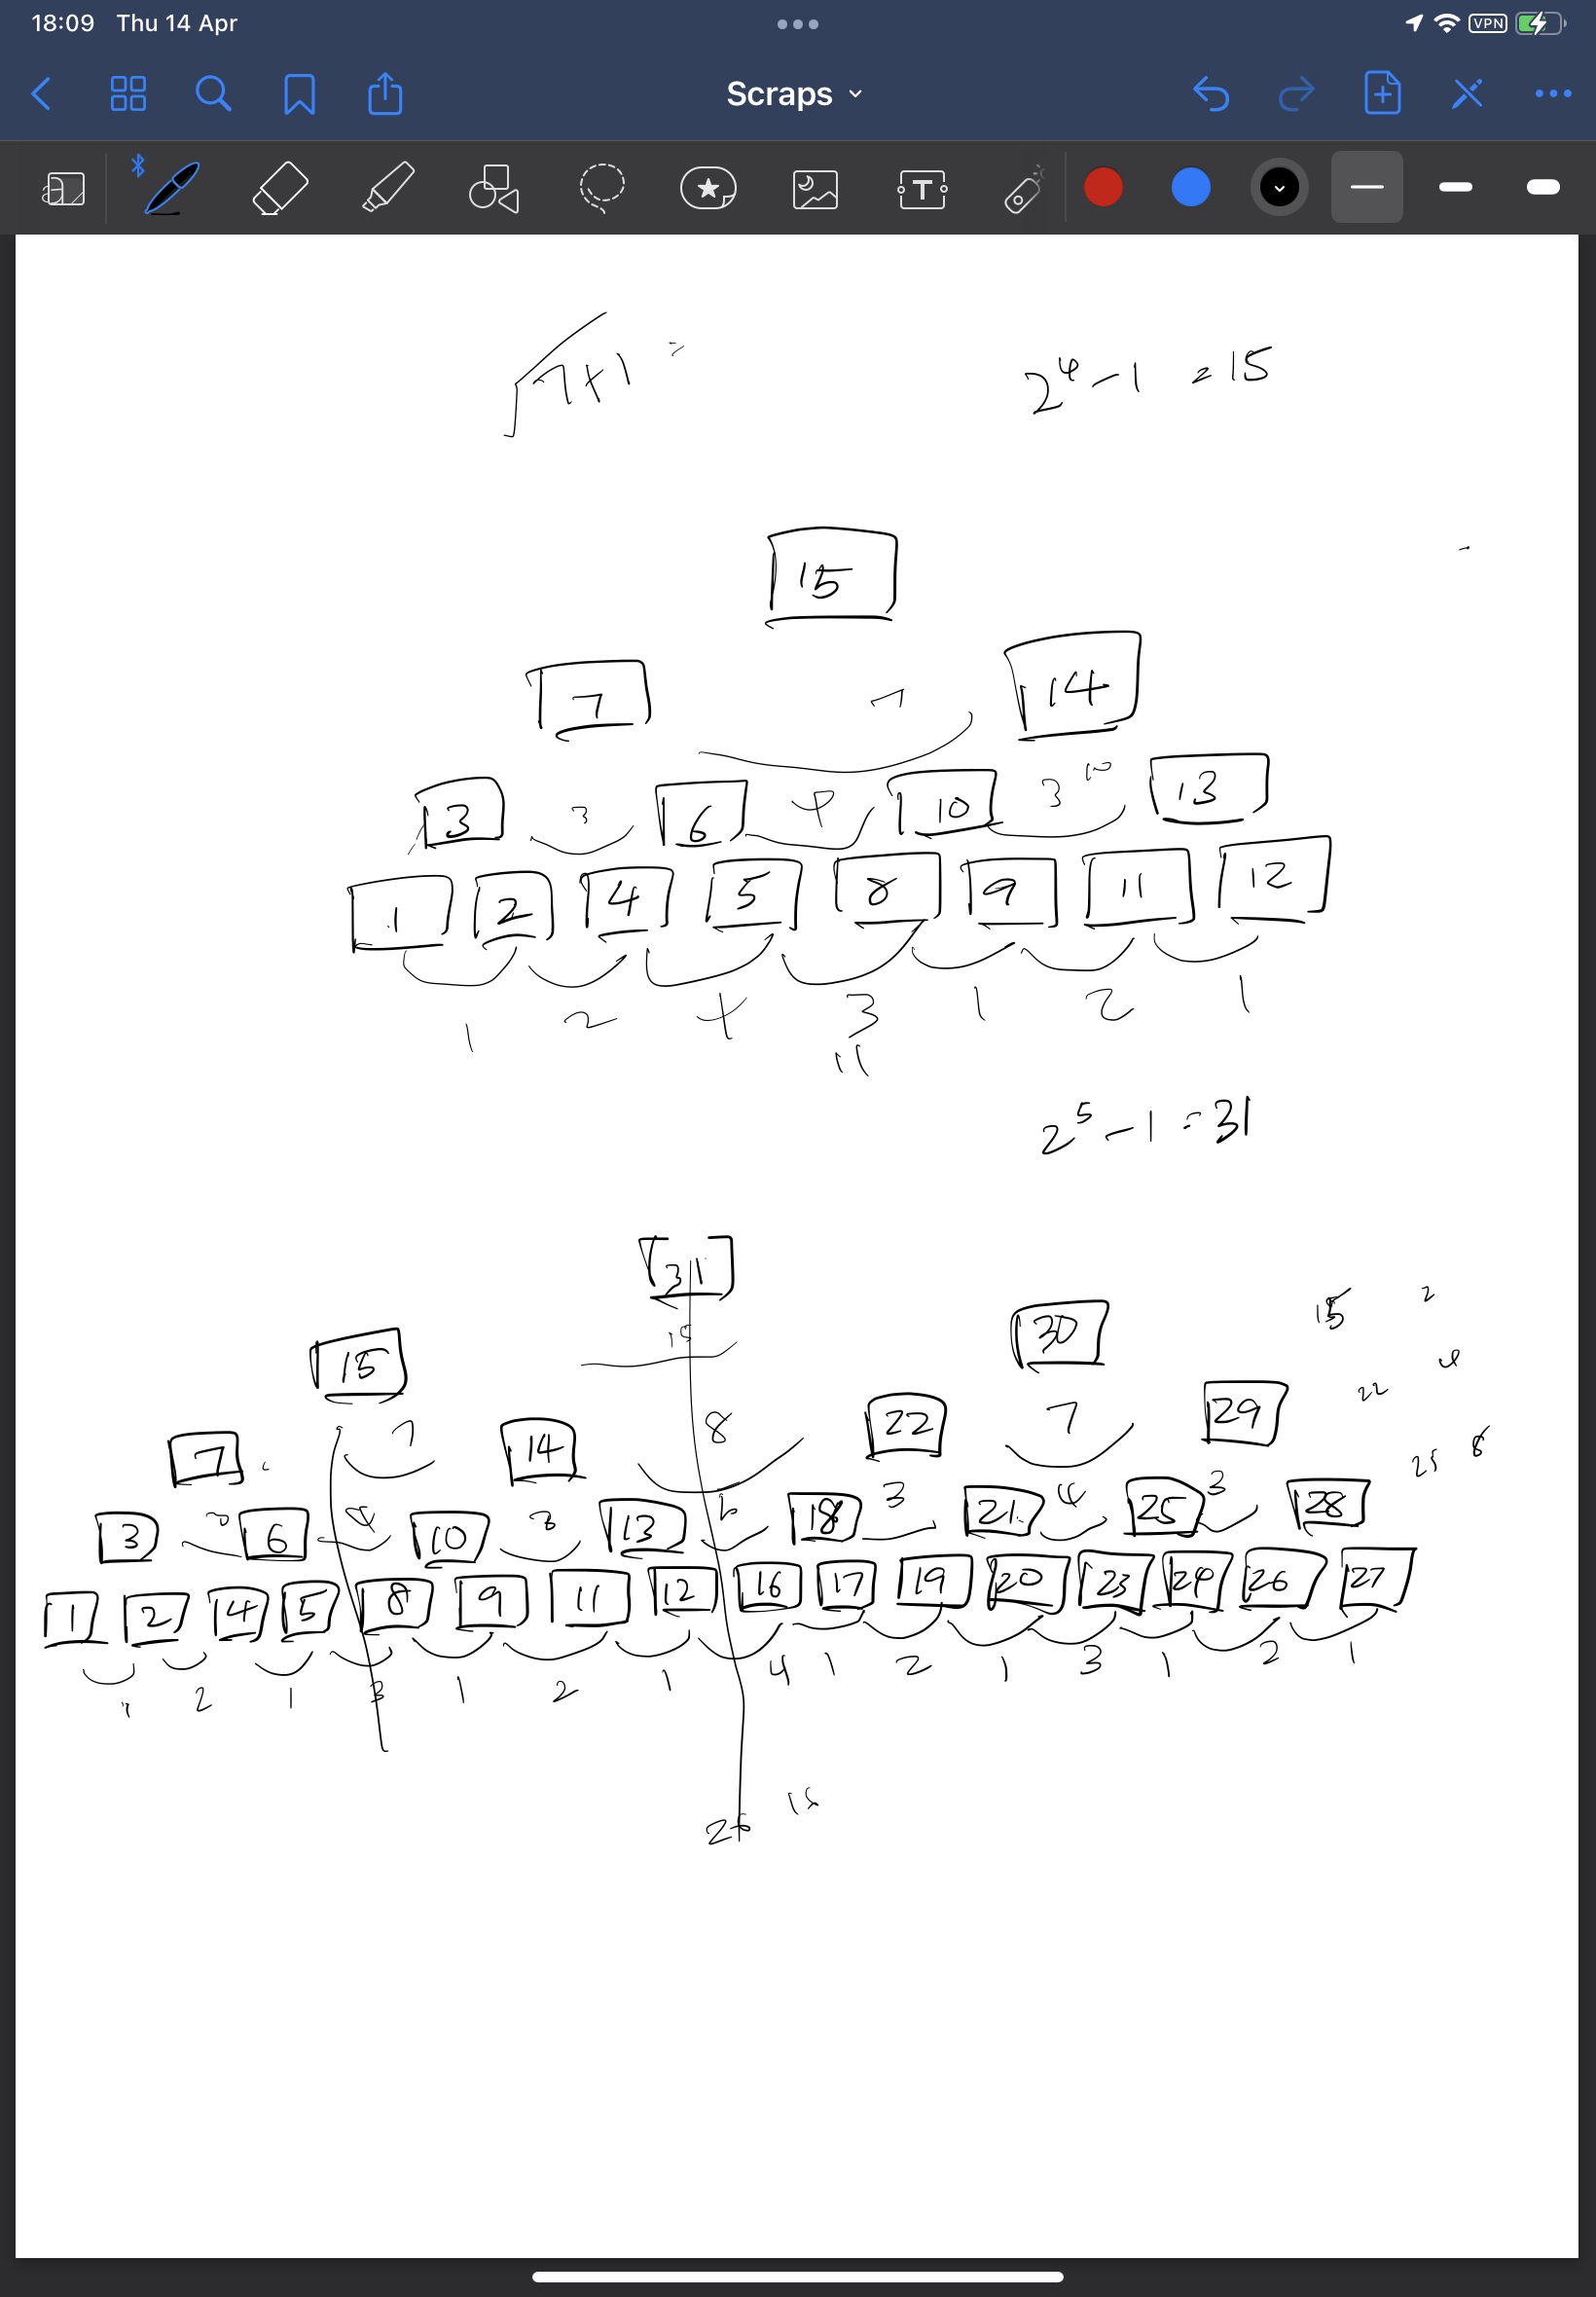 18:09 Thu 14 Apr
VPN
Scraps
T
√7+1 =
2⁴ - 1 = 15
15
7 7 14
3 3 6 4 10 3 10 13
1 2 4 5 8 9 11 12
1 2 3 1 2 1
11
2⁵ - 1 = 31
31
15 15 30 15 2
7 7 14 8 22 7 29 22 4
3 3 6 4 10 3 13 18 3 21 4 25 3 28 25 8
1 2 4 5 8 9 11 12 16 17 19 20 23 24 26 27
1 2 1 3 1 2 1 4 1 2 1 3 1 2 1
26